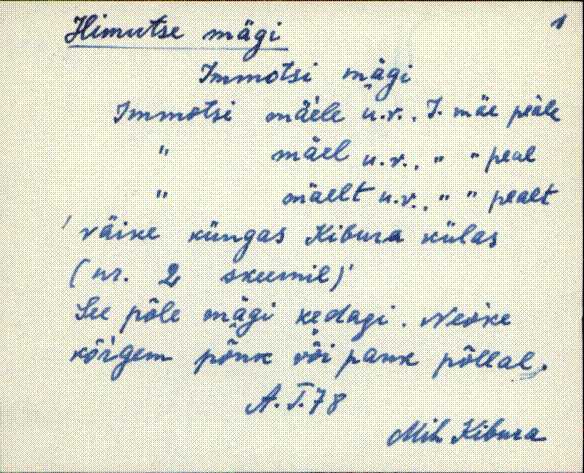 1
Himutse mägi
Immotsi mägi
Immotsi mäele u.v., I. mäe peäle
" mäel u.v., " " peal
" mäelt u.v., " " pealt
' väike küngas Kibura külas
(nr. 2 skeemil)'
See põle mägi kedagi. Neoke
kõrgem põnk või pank põllal.
A.T.78
Mih Kibura